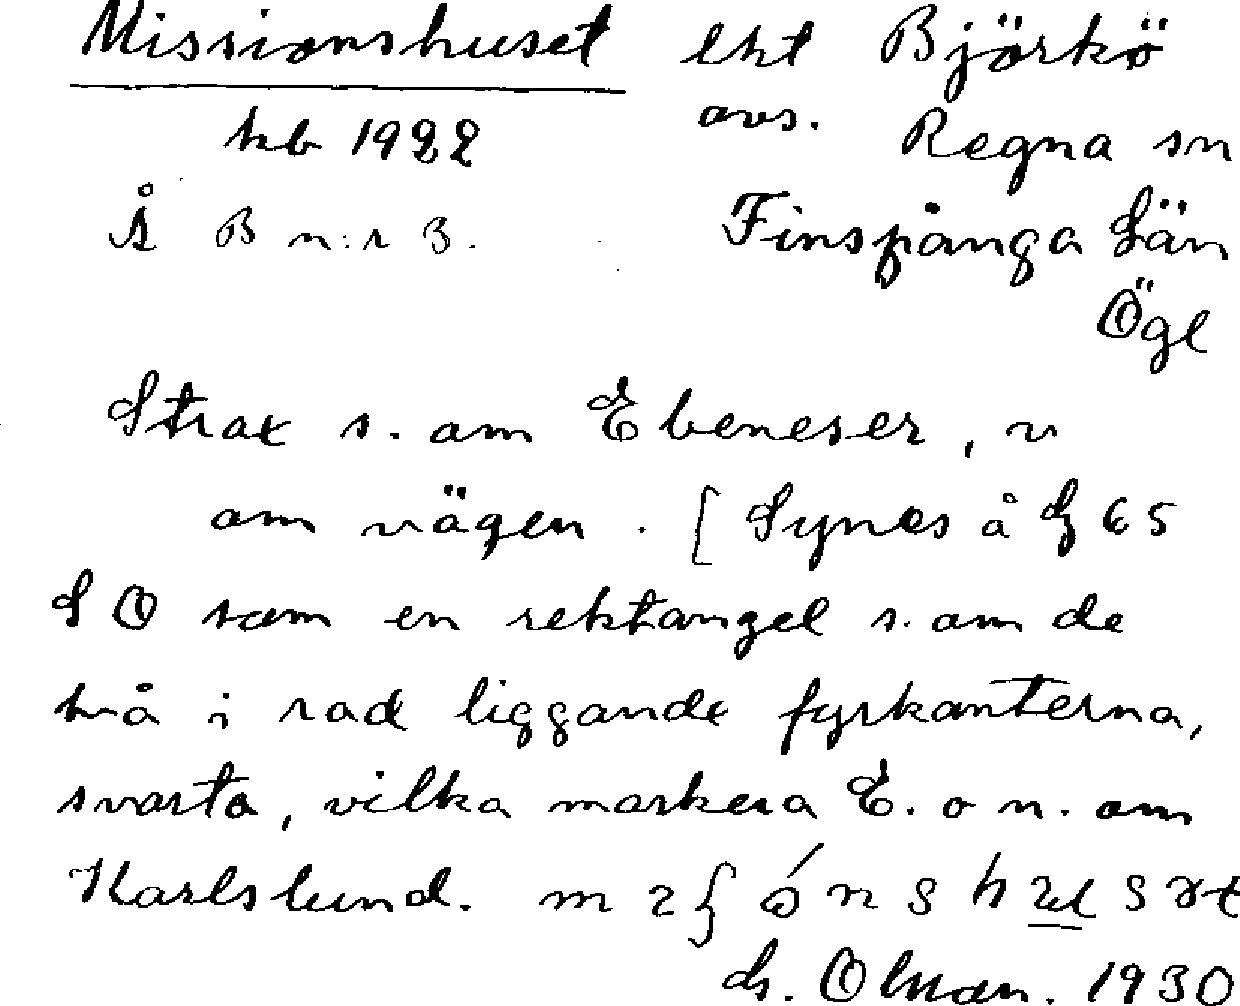 Missionshuset lht Björkö
kb 1922 avs. Regna sn
Å B n:r 3. Finspånga Län
Ögl
Strax s. om Ebeneser, v
om vägen. [Synes å G 65
S O som en rektangel s. om de
två i rad liggande fyrkanterna,
svarta, vilka markera E. o n. om
Karlslund.
1930